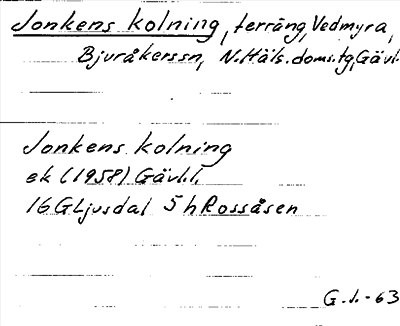 Jonkens kolning, terräng, Vedmyra,
Bjuråkerssn, N.Häls.doms.tg, Gävl.
Jonkens kolning
ek (1958) Gävl.l.
16G Ljusdal 5h Rossåsen
G.J.-63